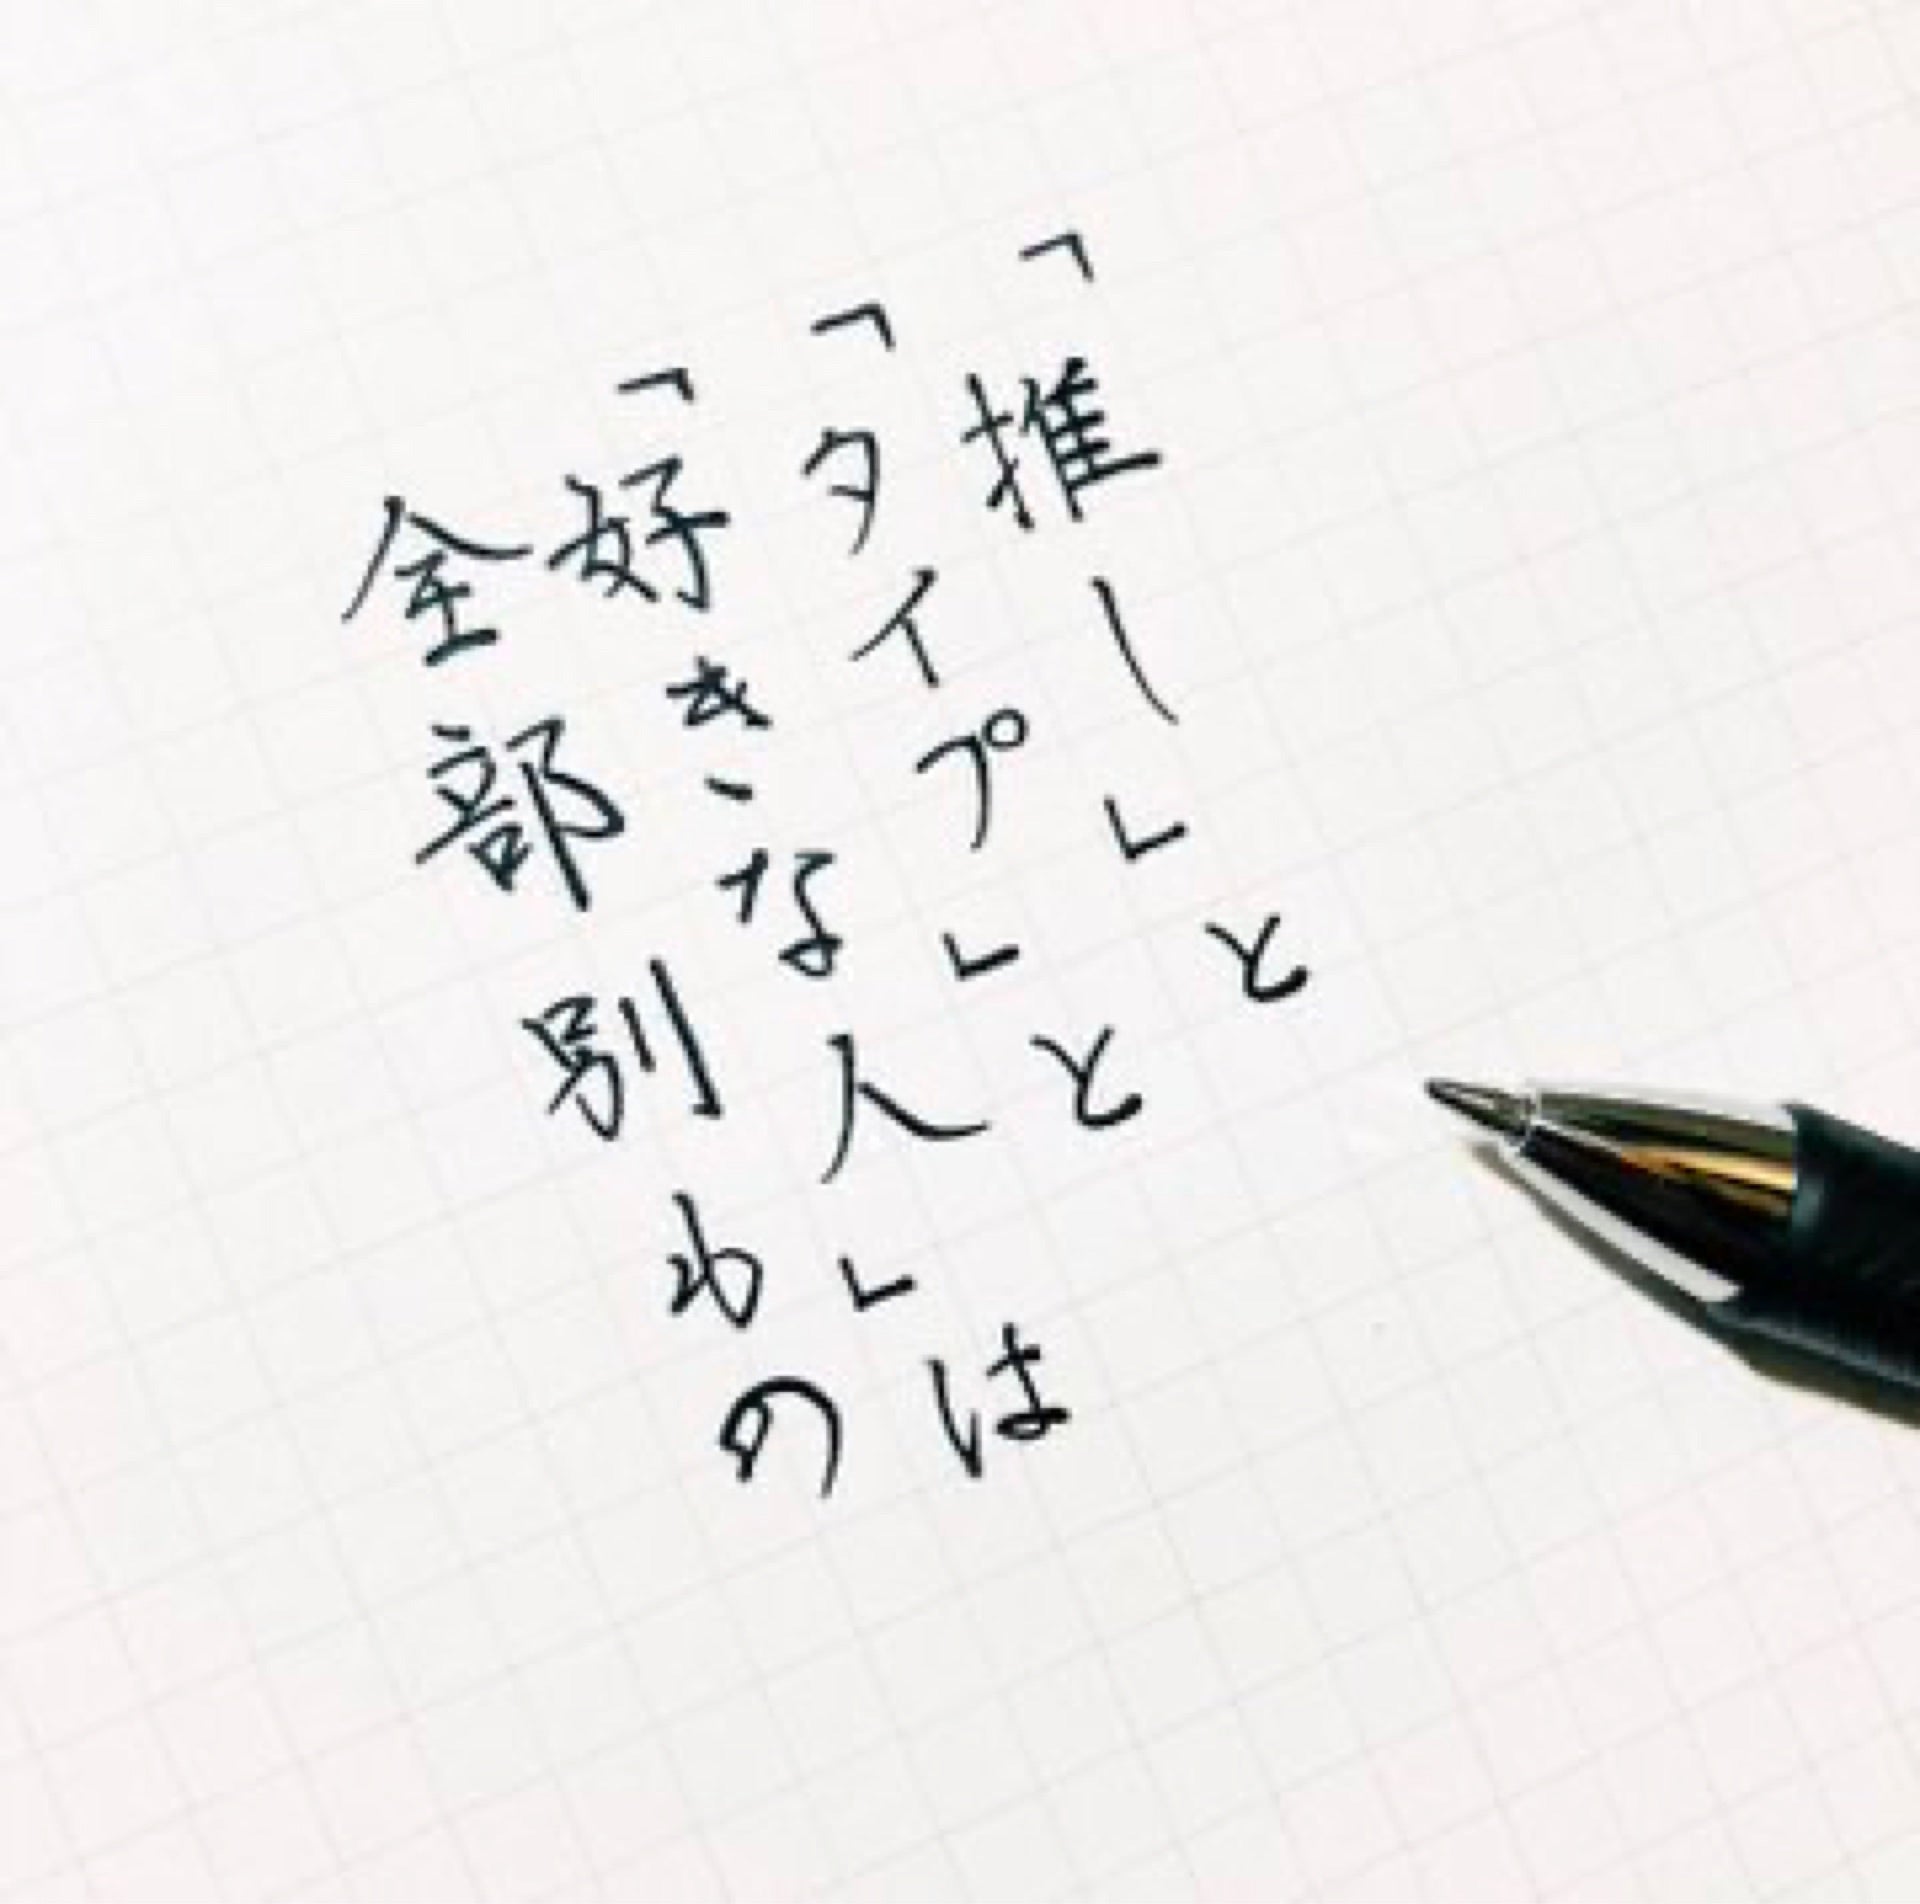 「推し」と
「タイプ」と
「好きな人」は
全部別もの